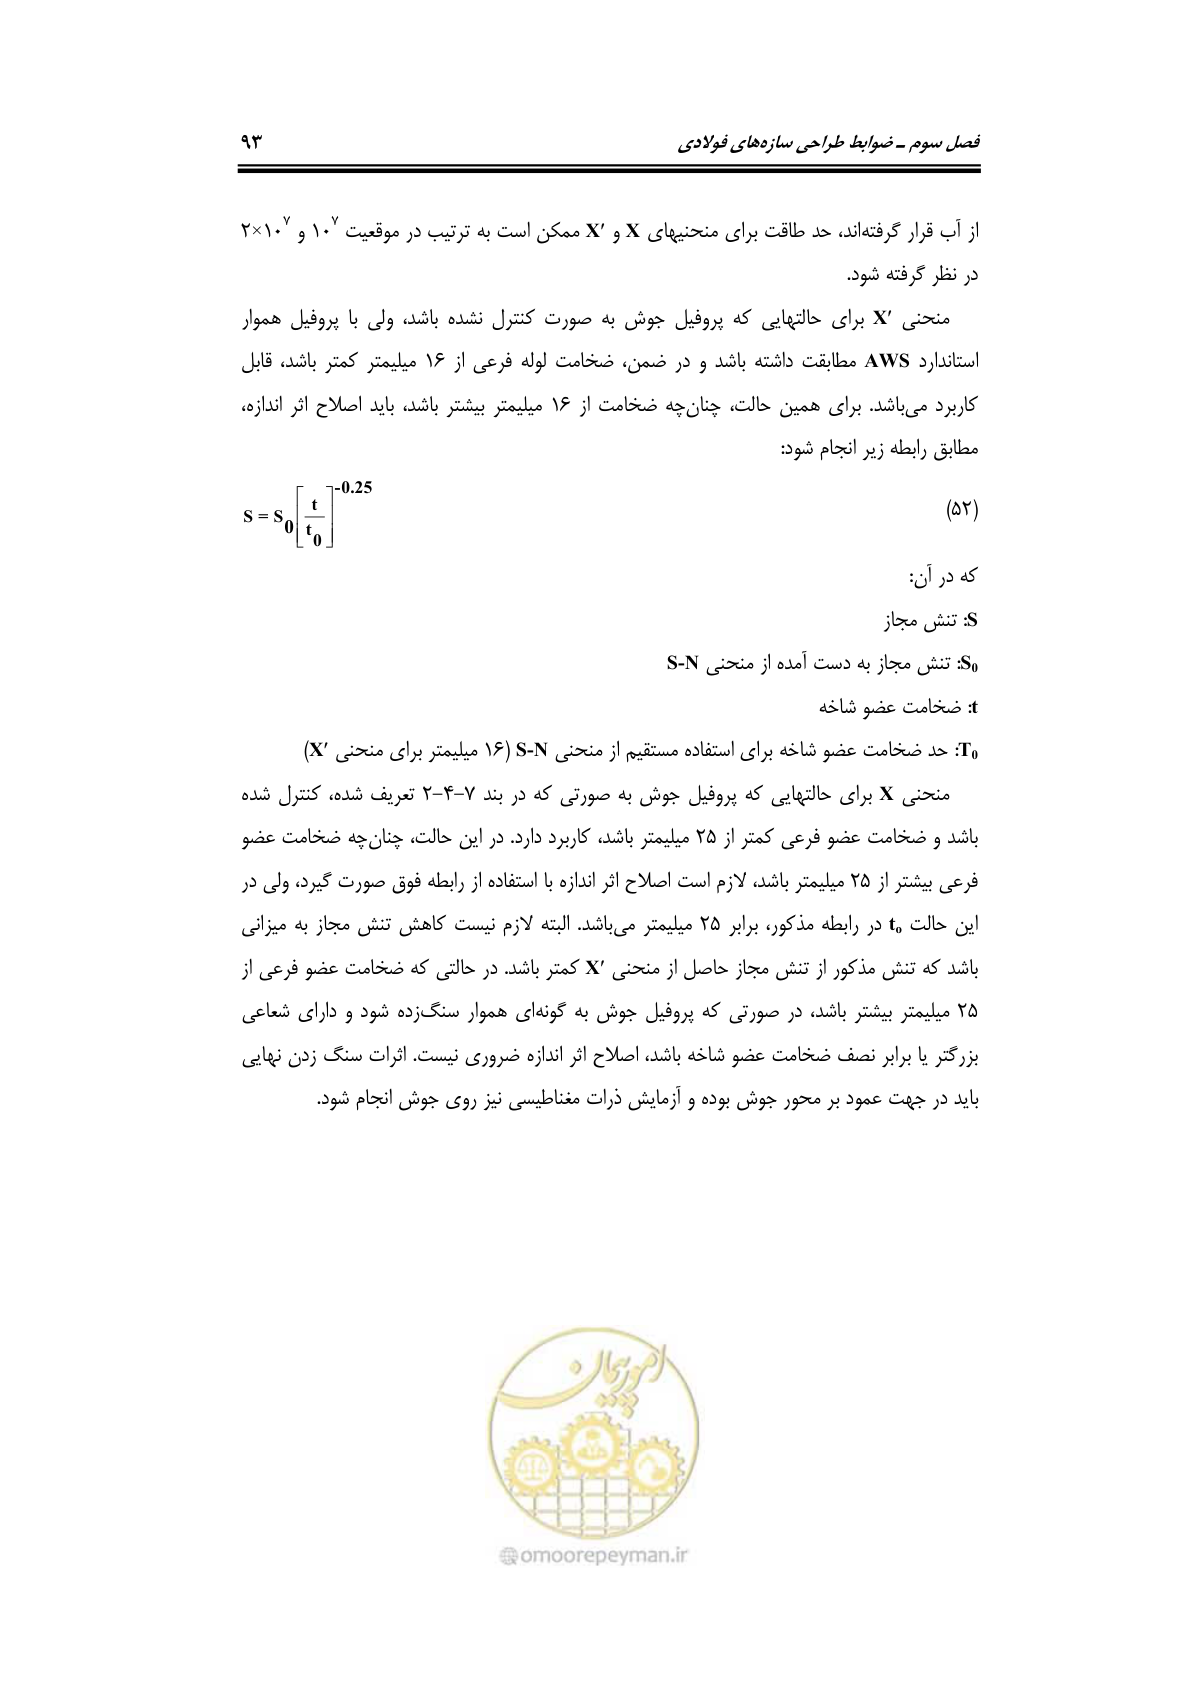 فصل سوم ـ ضوابط طراحی سازه‌های فولادی ۹۳
از آب قرار گرفته‌اند، حد طاقت برای منحنیهای X و X′ ممکن است به ترتیب در موقعیت ۱۰⁷ و ۲×۱۰⁷
در نظر گرفته شود.
منحنی X′ برای حالتهایی که پروفیل جوش به صورت کنترل نشده باشد، ولی با پروفیل هموار
استاندارد AWS مطابقت داشته باشد و در ضمن، ضخامت لوله فرعی از ۱۶ میلیمتر کمتر باشد، قابل
کاربرد می‌باشد. برای همین حالت، چنان‌چه ضخامت از ۱۶ میلیمتر بیشتر باشد، باید اصلاح اثر اندازه،
مطابق رابطه زیر انجام شود:
(۵۲) S = S₀[t/t₀]^-0.25
که در آن:
S: تنش مجاز
S₀: تنش مجاز به دست آمده از منحنی S-N
t: ضخامت عضو شاخه
T₀: حد ضخامت عضو شاخه برای استفاده مستقیم از منحنی S-N (۱۶ میلیمتر برای منحنی X′)
منحنی X برای حالتهایی که پروفیل جوش به صورتی که در بند ۷-۴-۲ تعریف شده، کنترل شده
باشد و ضخامت عضو فرعی کمتر از ۲۵ میلیمتر باشد، کاربرد دارد. در این حالت، چنان‌چه ضخامت عضو
فرعی بیشتر از ۲۵ میلیمتر باشد، لازم است اصلاح اثر اندازه با استفاده از رابطه فوق صورت گیرد، ولی در
این حالت tₒ در رابطه مذکور، برابر ۲۵ میلیمتر می‌باشد. البته لازم نیست کاهش تنش مجاز به میزانی
باشد که تنش مذکور از تنش مجاز حاصل از منحنی X′ کمتر باشد. در حالتی که ضخامت عضو فرعی از
۲۵ میلیمتر بیشتر باشد، در صورتی که پروفیل جوش به گونه‌ای هموار سنگ‌زده شود و دارای شعاعی
بزرگتر یا برابر نصف ضخامت عضو شاخه باشد، اصلاح اثر اندازه ضروری نیست. اثرات سنگ زدن نهایی
باید در جهت عمود بر محور جوش بوده و آزمایش ذرات مغناطیسی نیز روی جوش انجام شود.
امور پیمان
@omoorepeyman.ir